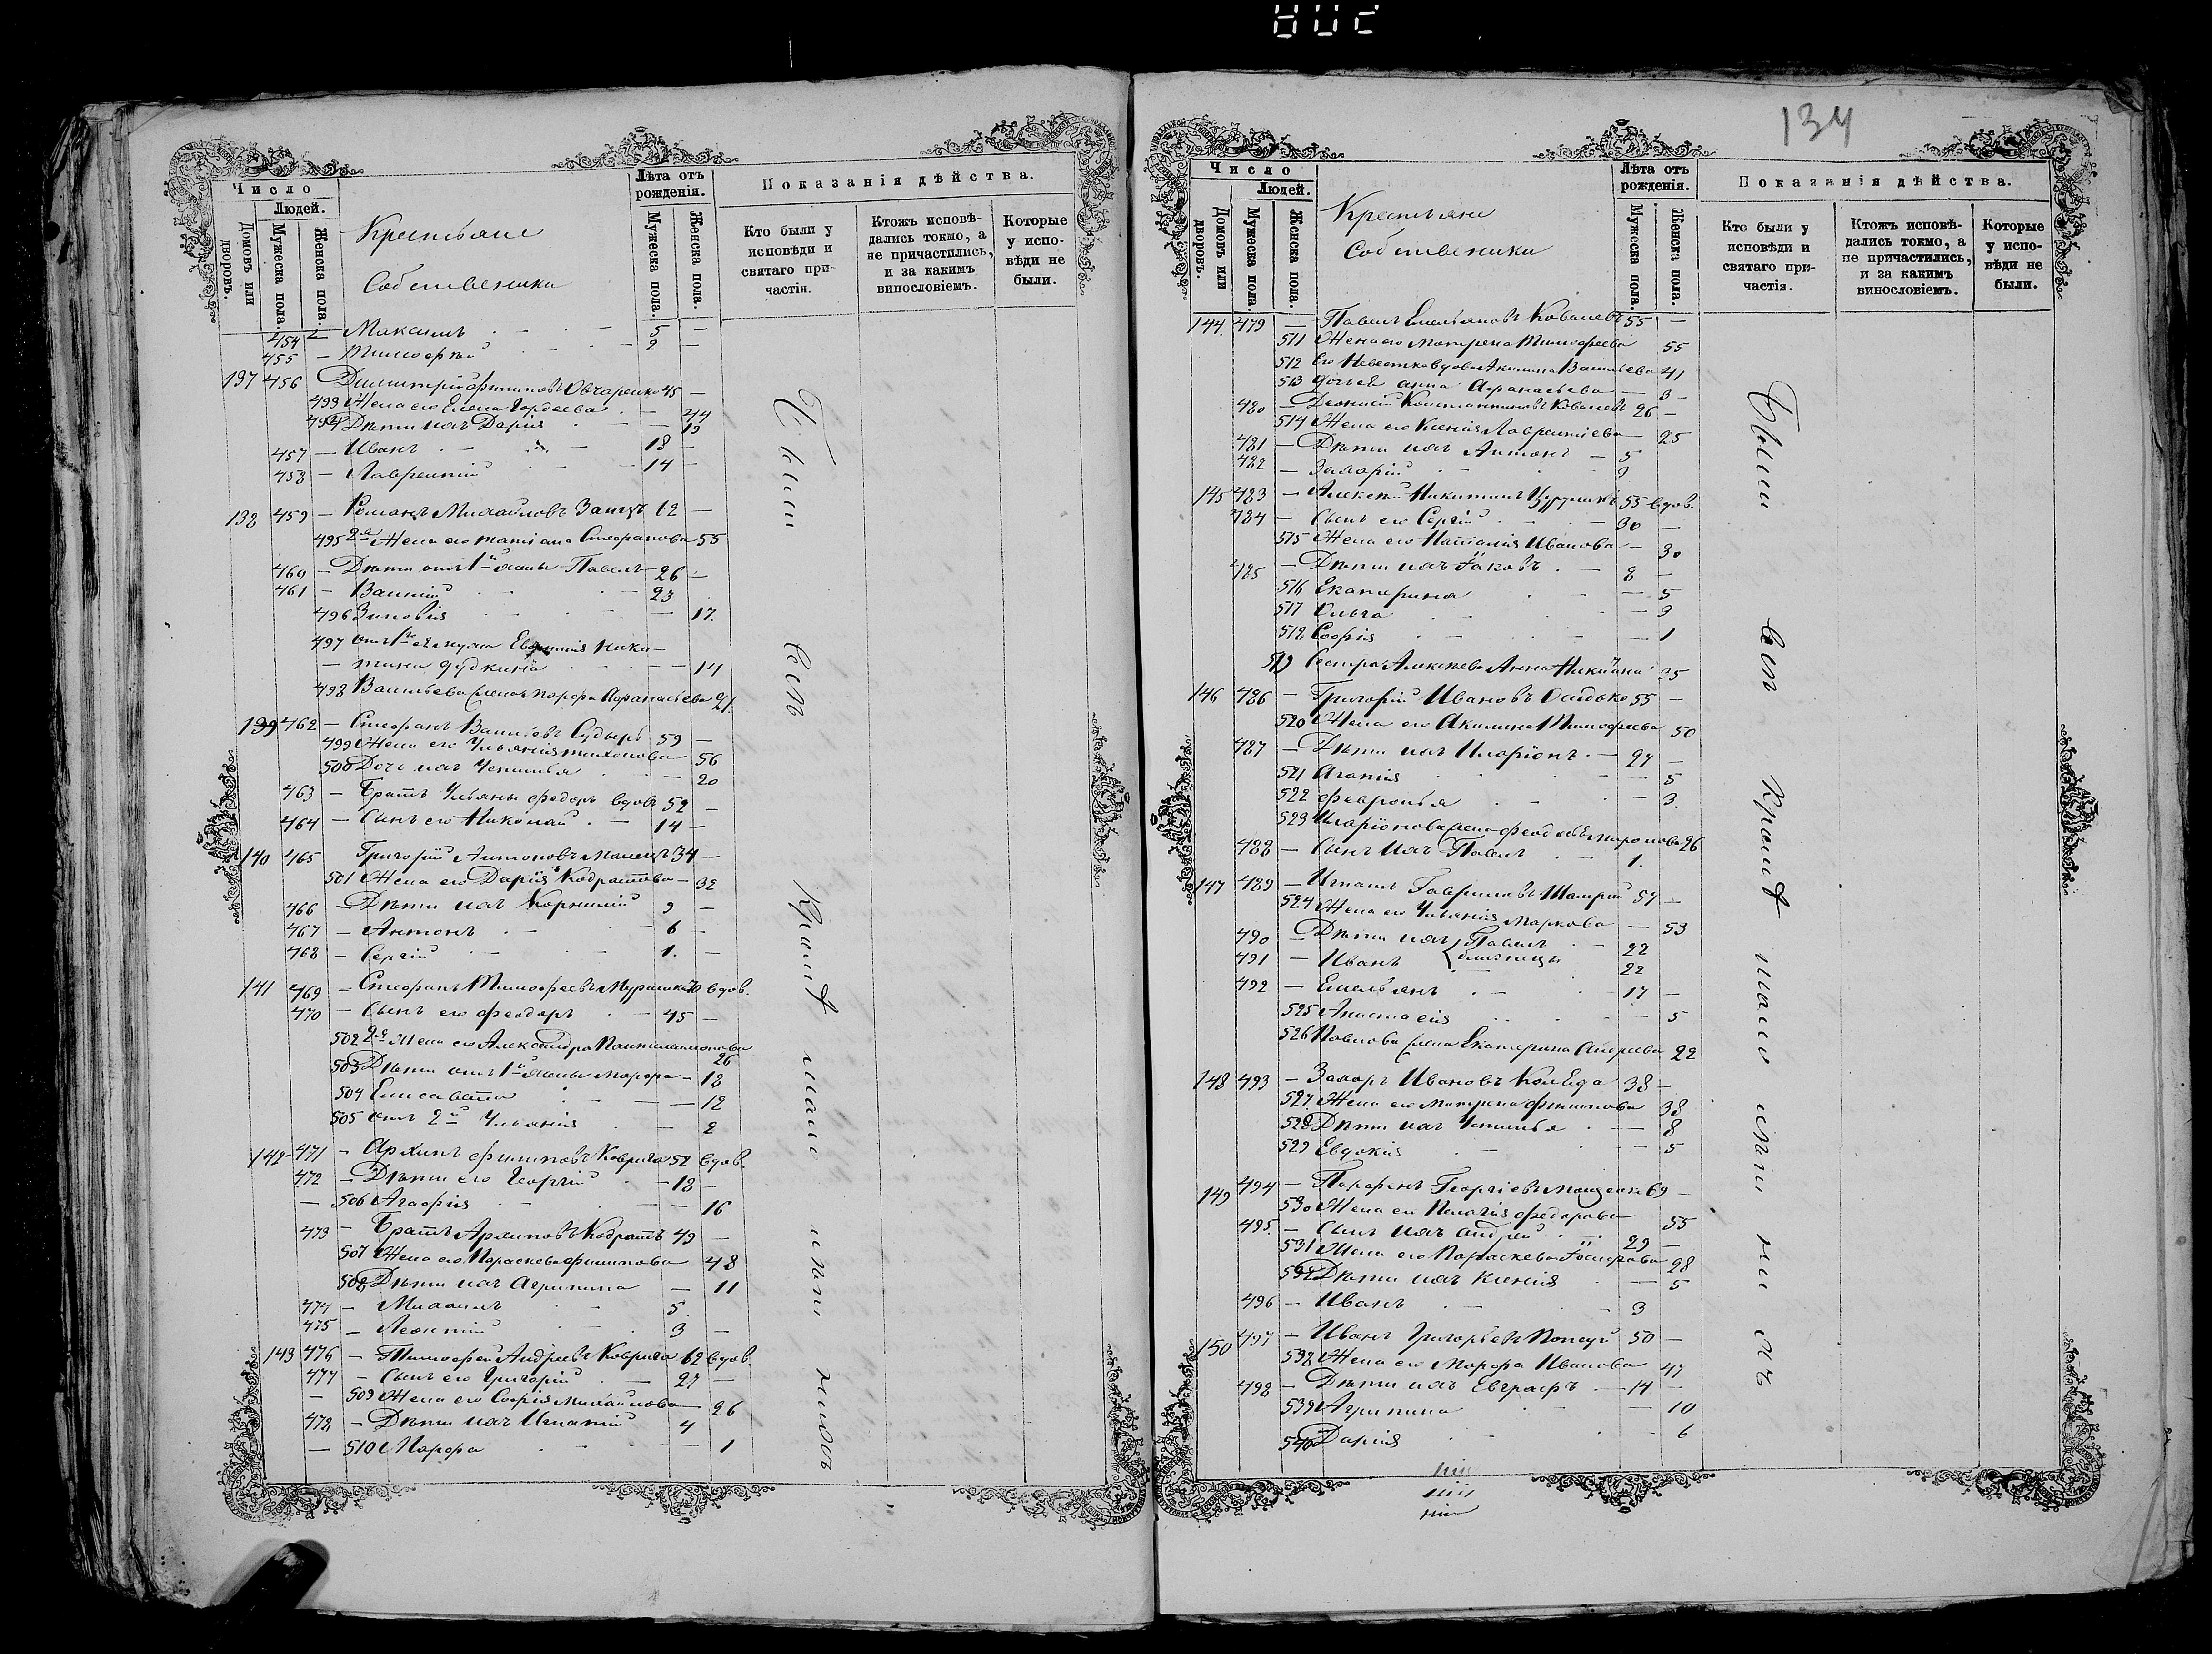 134
Число
Людей.
Домовъ или дворовъ.
Мужеска пола.
Женска пола.
Крестьяне
Собственики
Лѣта отъ рожденія.
Мужеска пола.
Женска пола.
Показанія дѣйства.
Кто были у исповѣди и святаго причастія.
Ктожъ исповѣдались токмо, а не причастились, и за какимъ винословіемъ.
Которые у исповѣди не были.
454 — Максимъ — 5 —
455 — Тимофей — 2 —
137 456 Димитрій Филиповъ Овчаренко 45 —
493 Жена его Елена Гордеева — 44
494 Дѣти ихъ Дарія — 19
457 — Иванъ — 18 —
458 — Лаврентій — 14 —
138 459 — Романъ Михайловъ Заецъ 62 —
495 2я Жена его Татіана Стефанова 55
460 — Дѣти отъ 1й жены Павелъ — 26 —
461 — Василій — 23
496 Зиновія — 17
497 отъ 1го ея мужа
— 14
498 Васильева жена Марфа Афанасьева 21
139 462 — Стефанъ Васильевъ 59 —
499 Жена его Ульянія Тихонова — 56
500 Дочь ихъ Устинья — 20
463 — Братъ Ульяны Федоръ вдовъ 52 —
464 — Сынъ его Николай — 14 —
140 465 Григорій Антоновъ 34 —
501 Жена его Дарія Кодратова — 32
466 — Дѣти ихъ Корнилій 9 —
467 — Антонъ — 6 —
468 — Сергій — 1. —
141 469 — Стефанъ Тимофеевъ Мурашко 70 вдов.
470 — Сынъ его Феодоръ — 45 —
502 2я Жена его Александра Пантелимонова 26
503 Дѣти отъ 1й жены Марфа — 18
504 Елисавета — 12
505 отъ 2й Ульянія — 2
142 471 — Архипъ Филиповъ Коврига 52 вдов.
472 — Дѣти его Георгій — 18 —
— 506 Агафія — 16
473 — Братъ Архиповъ Кодратъ 49 —
507 Жена его Параскева Филипова 48
508 Дѣти ихъ Агрипина — 11
474 — Михаилъ — 5
475 — Леонтій — 3 —
143 476 — Тимофей Андреевъ Коврига 62 вдов.
477 — Сынъ его Григорій — 27 —
— 509 Жена его Софія Михайлова — 26
478 — Дѣти ихъ Игнатій 4
— 510 Марфа — 1
Были всѣ кромѣ мало лѣтнихъ
Число
Людей.
Домовъ или дворовъ.
Мужеска пола.
Женска пола.
Крестьяне
Собственики
Лѣта отъ рожденія.
Мужеска пола.
Женска пола.
Показанія дѣйства.
Кто были у исповѣди и святаго причастія.
Ктожъ исповѣдались токмо, а не причастились, и за какимъ винословіемъ.
Которые у исповѣди не были.
144 479 — Павелъ Емельяновъ Ковалевъ 55 —
511 Жена его Матрена Тимофеева 55
512 Его Невестка вдова Акилина Васильева 41
513 Дочь ея Анна Афанасьева — 3
480 — Діонисій Константиновъ Ковалевъ 26 —
514 Жена его Ксенія Лаврентіева — 25
481 — Дѣти ихъ Антонъ — 5
482 — Захарій 3
145 483 — Алексей Никитинъ 55 вдов.
484 — Сынъ его Сергій — 30 —
515 Жена его Наталія Иванова — 30
485 — Дѣти ихъ Іаковъ — 8 —
516 Екатерина — 5
517 Ольга — 3
518 Софія — 1
519 Сестра Алексѣева Анна 35
146 486 — Григорій Ивановъ 55 —
520 Жена его Акилина Тимофеева 50
487 — Дѣти ихъ Иларіонъ — 27 —
521 Агапія — 5
522 Февронья — 3
523 Иларіонова жена Маронова 26
488 — Сынъ ихъ Павелъ — 1.
147 489 — Игнатъ Гавриловъ 57 —
524 Жена его Ульянія Маркова — 53
490 — Дѣти ихъ Павелъ — 22
491 — Иванъ близнецы 22
492 — Емельянъ — 17 —
525 Анастасія — 5
526 Павлова жена Екатерина Андреева 22
148 493 — Захаръ Ивановъ Коледа 38 —
527 Жена его Матрена Филипова 38
528 Дѣти ихъ Устинья — 8
529 Евдокія — 5
149 494 — Парфенъ Георгіевъ 69 —
530 Жена его Пелагія Федорова 55
495 — Сынъ ихъ Андрей — 29 —
531 Жена его Параскева Іосифова 28
532 Дѣти ихъ Ксенія — 5
496 — Иванъ — 3
150 497 — Иванъ Григорьевъ 50 —
538 Жена его Марфа Иванова 47
498 — Дѣти ихъ Евграфъ — 14 —
539 Агрипина — 10
540 Дарія — 6
Были всѣ кромѣ мало лѣтнихъ